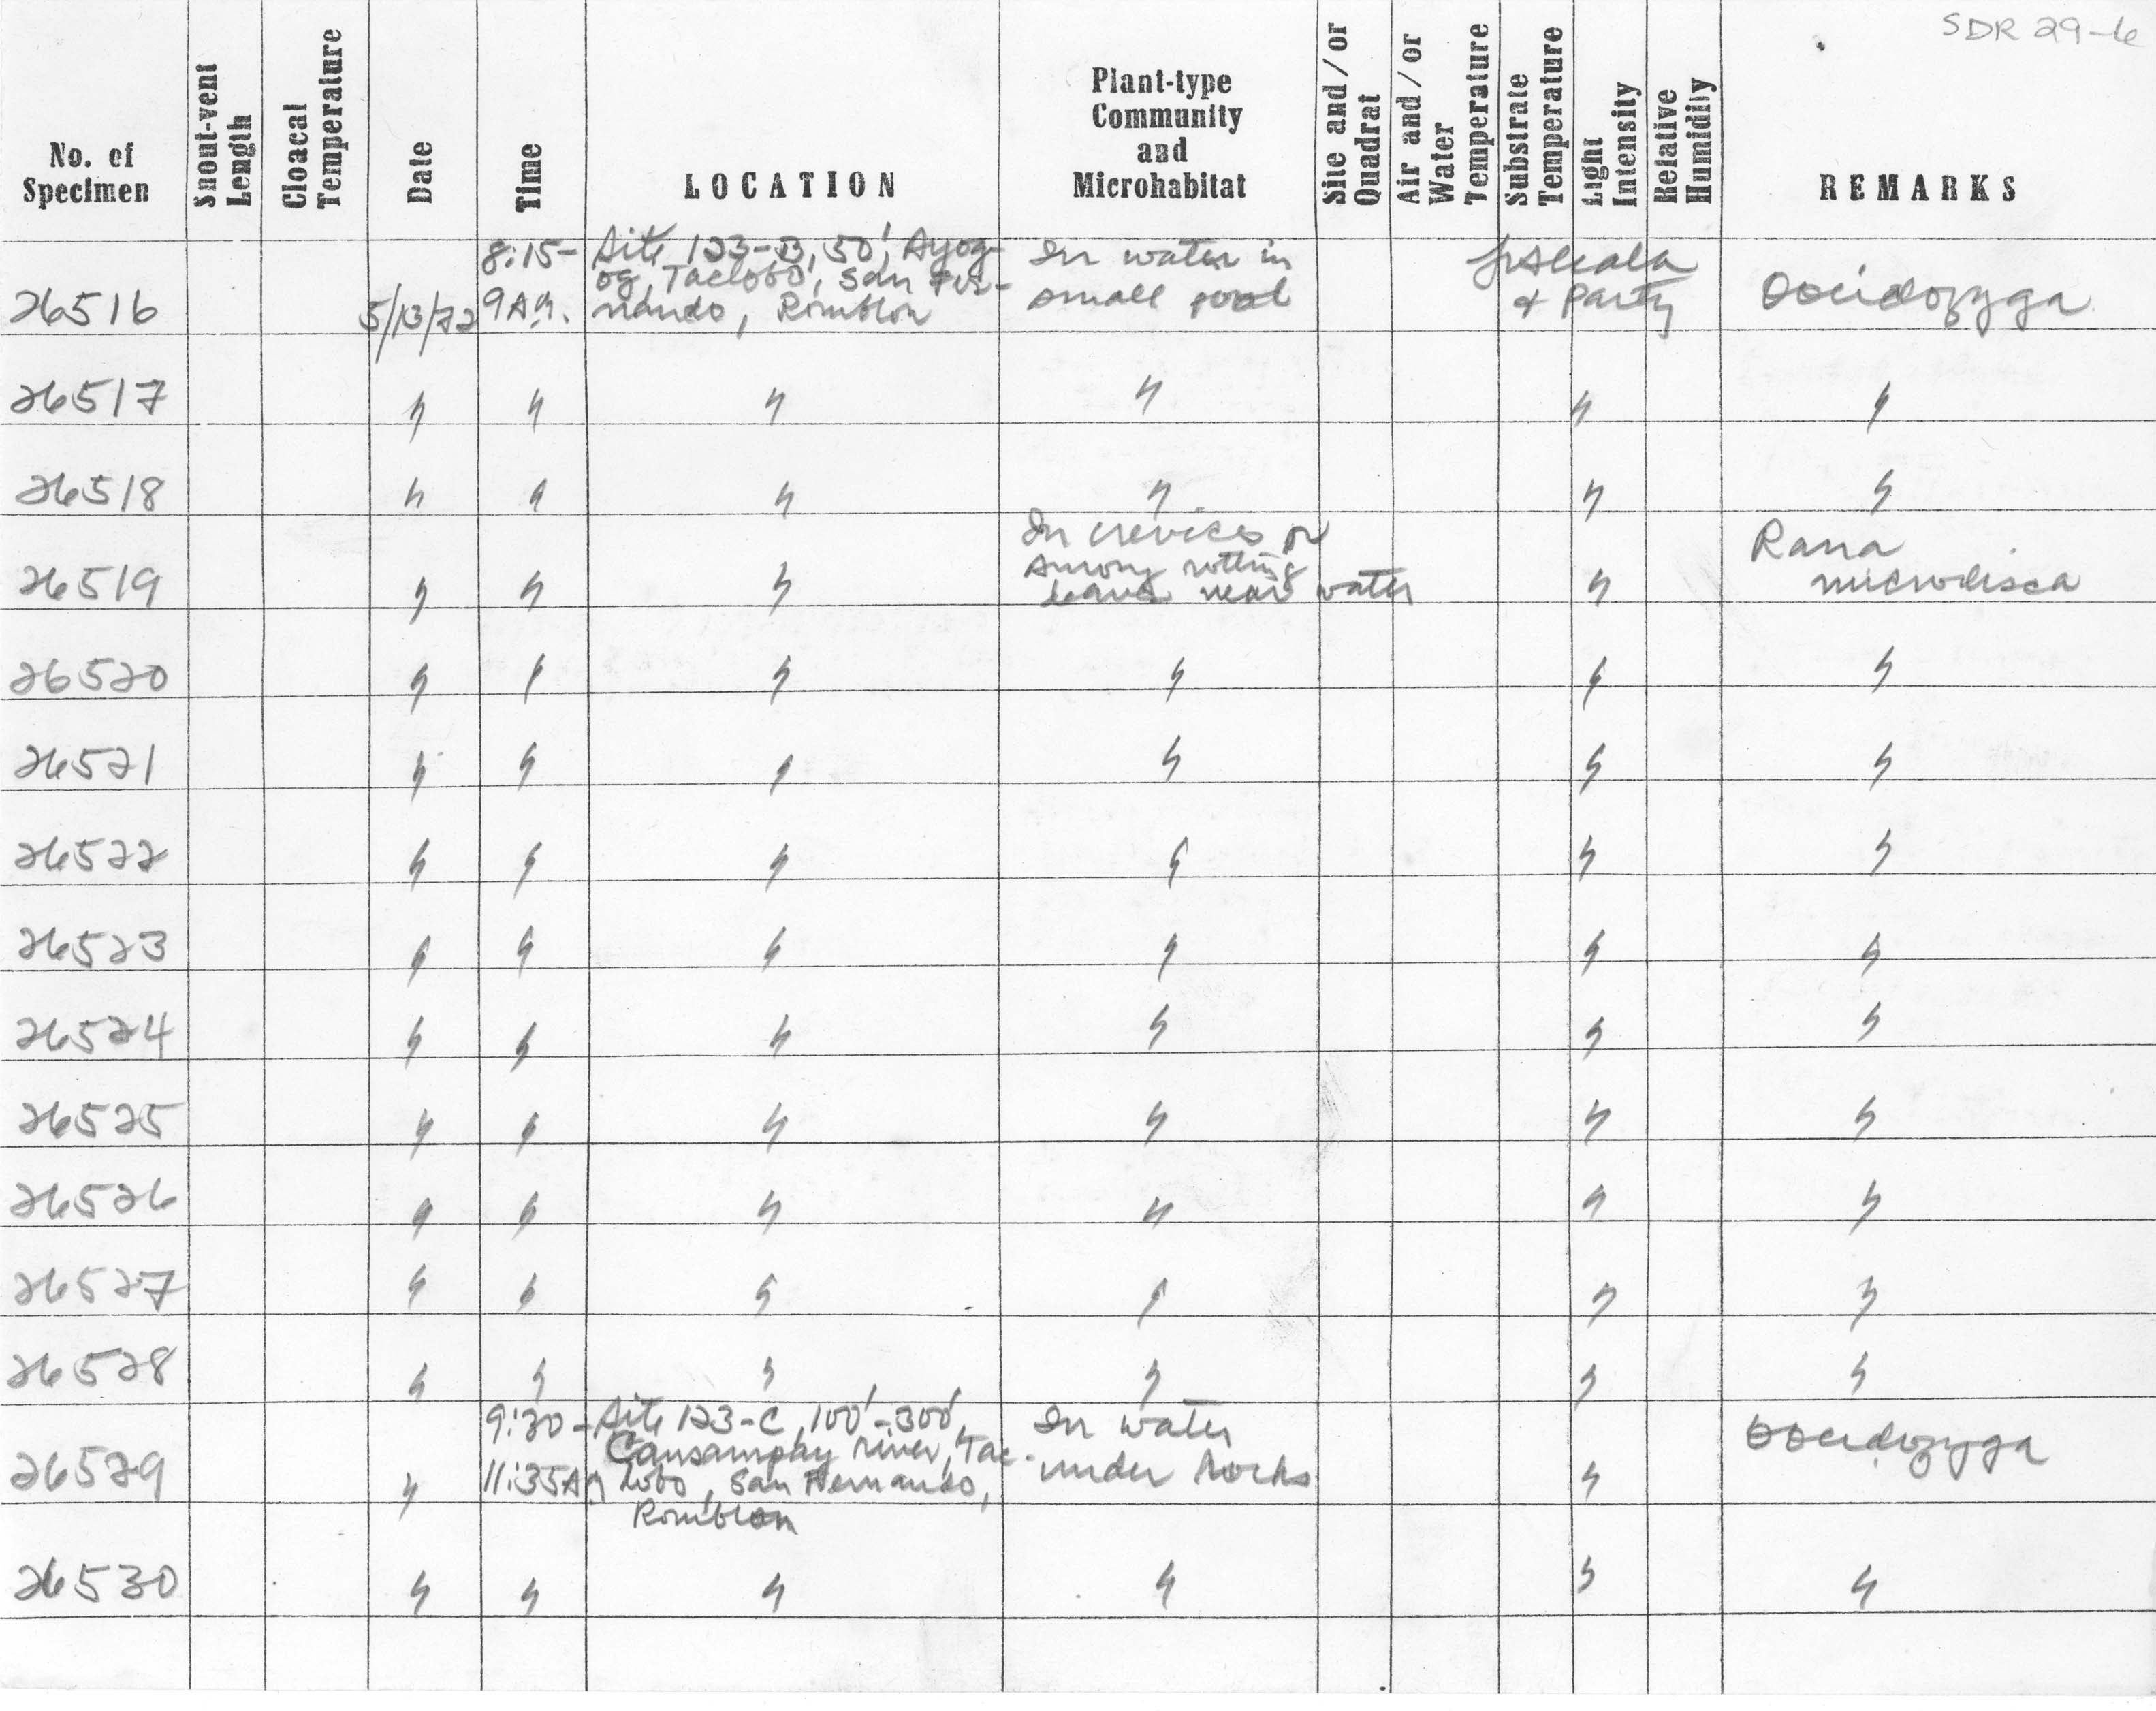 SDR 29-6
No. of Specimen | Snout-vent Length | Cloacal Temperature | Date | Time | LOCATION | Plant-type Community and Microhabitat | Site and/or Quadrat | Air and/or Water Temperature | Substrate Temperature | Light Intensity | Relative Humidity | REMARKS
26516 | 5/13/72 | 8:15-9 AM. | Site 123-B, 50', Ayog-og, Taclobo, San Fer-nando, Romblon | In water in small pool | Alcala & Party | Ooeidozyga
26517 | " | " | " | " | " | "
26518 | " | " | " | " | " | "
26519 | " | " | " | In crevices or among rotting leaves near water | " | Rana microdisca
26520 | " | " | " | " | " | "
26521 | " | " | " | " | " | "
26522 | " | " | " | " | " | "
26523 | " | " | " | " | " | "
26524 | " | " | " | " | " | "
26525 | " | " | " | " | " | "
26526 | " | " | " | " | " | "
26527 | " | " | " | " | " | "
26528 | " | " | " | " | " | "
26529 | " | 9:30-11:35 AM | Site 123-C, 100'-300', river, Tac-lobo, San Fernando, Romblon | In water under rocks | " | Ooeidozyga
26530 | " | " | " | " | " | "